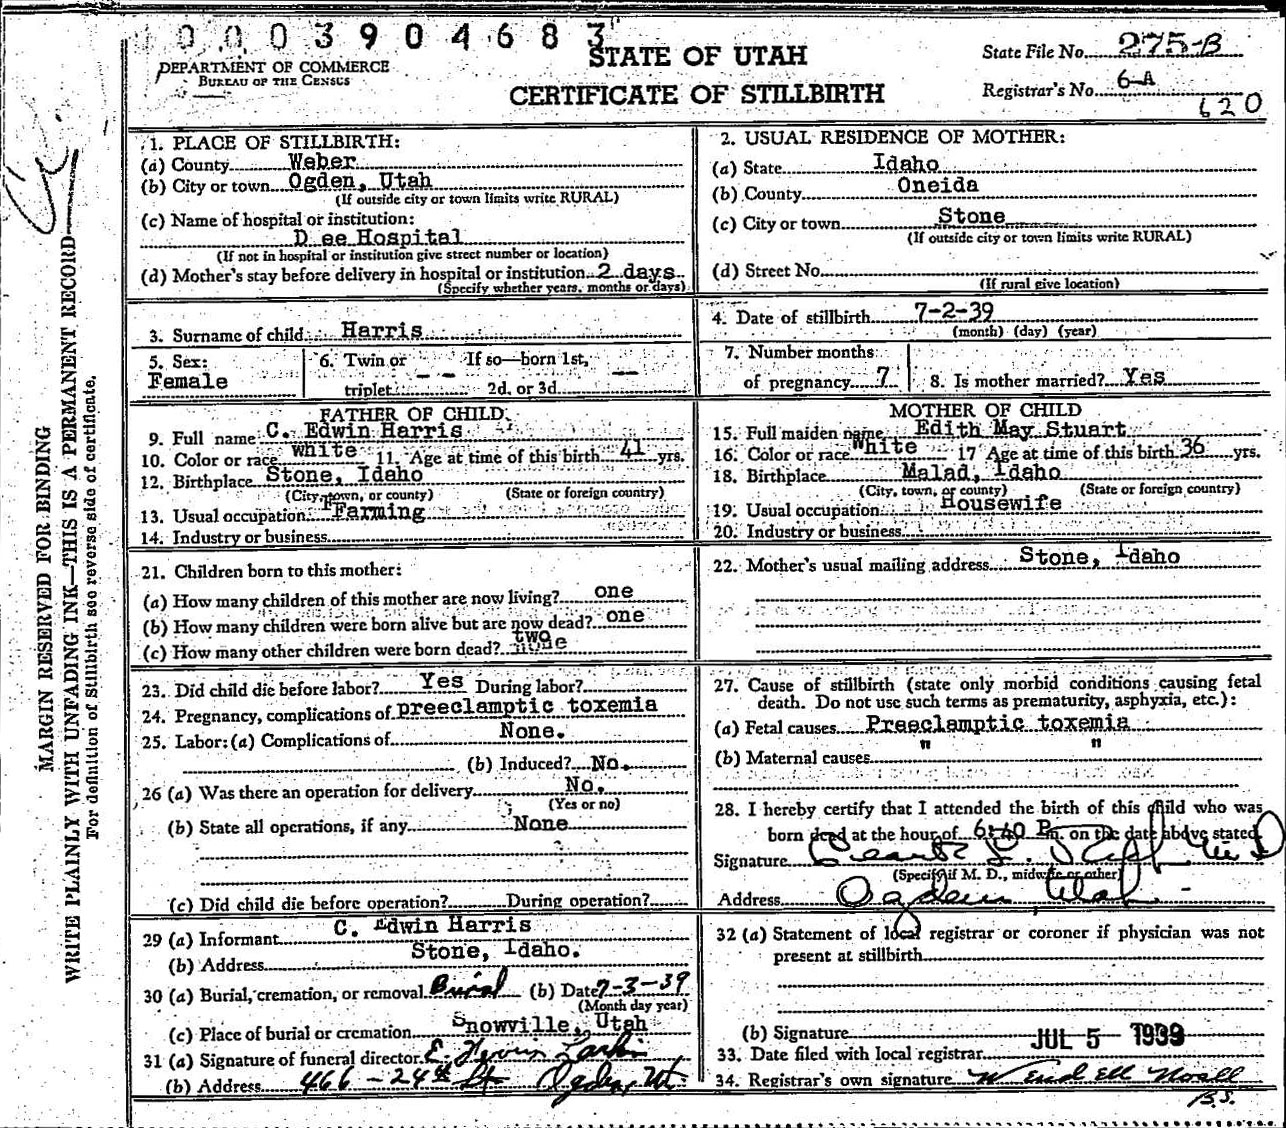 0003904683
DEPARTMENT OF COMMERCE
BUREAU OF THE CENSUS
STATE OF UTAH
CERTIFICATE OF STILLBIRTH
State File No. 275-B
Registrar's No. 6-A
620
MARGIN RESERVED FOR BINDING
WRITE PLAINLY WITH UNFADING INK—THIS IS A PERMANENT RECORD
For definition of Stillbirth see reverse side of certificate.
1. PLACE OF STILLBIRTH:
(a) County Weber
(b) City or town Ogden, Utah
(If outside city or town limits write RURAL)
(c) Name of hospital or institution:
D ee Hospital
(If not in hospital or institution give street number or location)
(d) Mother's stay before delivery in hospital or institution 2 days
(Specify whether years, months or days)
2. USUAL RESIDENCE OF MOTHER:
(a) State Idaho
(b) County Oneida
(c) City or town Stone
(If outside city or town limits write RURAL)
(d) Street No.
(If rural give location)
3. Surname of child Harris
4. Date of stillbirth 7-2-39
(month) (day) (year)
5. Sex: Female
6. Twin or triplet -- If so—born 1st, 2d. or 3d —
7. Number months of pregnancy 7
8. Is mother married? Yes
FATHER OF CHILD
9. Full name C. Edwin Harris
10. Color or race White 11. Age at time of this birth 41 yrs.
12. Birthplace Stone, Idaho
(City, town, or county) (State or foreign country)
13. Usual occupation Farming
14. Industry or business
MOTHER OF CHILD
15. Full maiden name Edith May Stuart
16. Color or race White 17 Age at time of this birth 36 yrs.
18. Birthplace Malad, Idaho
(City, town, or county) (State or foreign country)
19. Usual occupation Housewife
20. Industry or business
21. Children born to this mother:
(a) How many children of this mother are now living? one
(b) How many children were born alive but are now dead? one
(c) How many other children were born dead? two none
22. Mother's usual mailing address Stone, Idaho
23. Did child die before labor? Yes During labor?
24. Pregnancy, complications of preeclamptic toxemia
25. Labor: (a) Complications of None.
(b) Induced? No.
26 (a) Was there an operation for delivery No.
(Yes or no)
(b) State all operations, if any None
(c) Did child die before operation? During operation?
27. Cause of stillbirth (state only morbid conditions causing fetal
death. Do not use such terms as prematurity, asphyxia, etc.):
(a) Fetal causes Preeclamptic toxemia
(b) Maternal causes " "
28. I hereby certify that I attended the birth of this child who was
born dead at the hour of 6:40 P.m. on the date above stated
Signature M D
(Specify if M. D., midwife or other)
Address Ogden Utah
29 (a) Informant C. Edwin Harris
(b) Address Stone, Idaho.
30 (a) Burial, cremation, or removal Burial (b) Date 7-3-39
(Month day year)
(c) Place of burial or cremation Snowville, Utah
31 (a) Signature of funeral director E. Larkin
(b) Address 466 - 24th St Ogden, Ut.
32 (a) Statement of local registrar or coroner if physician was not
present at stillbirth
(b) Signature
33. Date filed with local registrar JUL 5 1939
34. Registrar's own signature Wendell Noall
B.S.